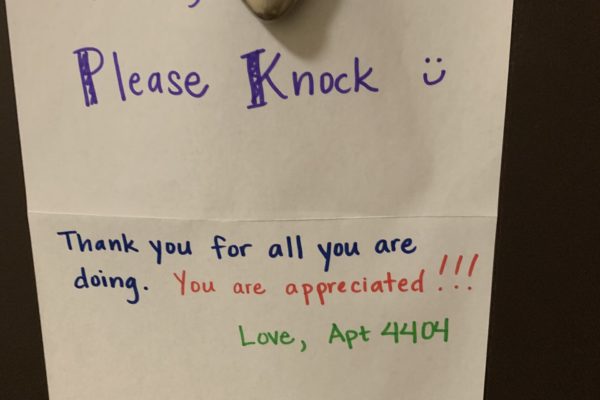 Please Knock ㋡
Thank you for all you are
doing. You are appreciated!!!
Love, Apt 4404